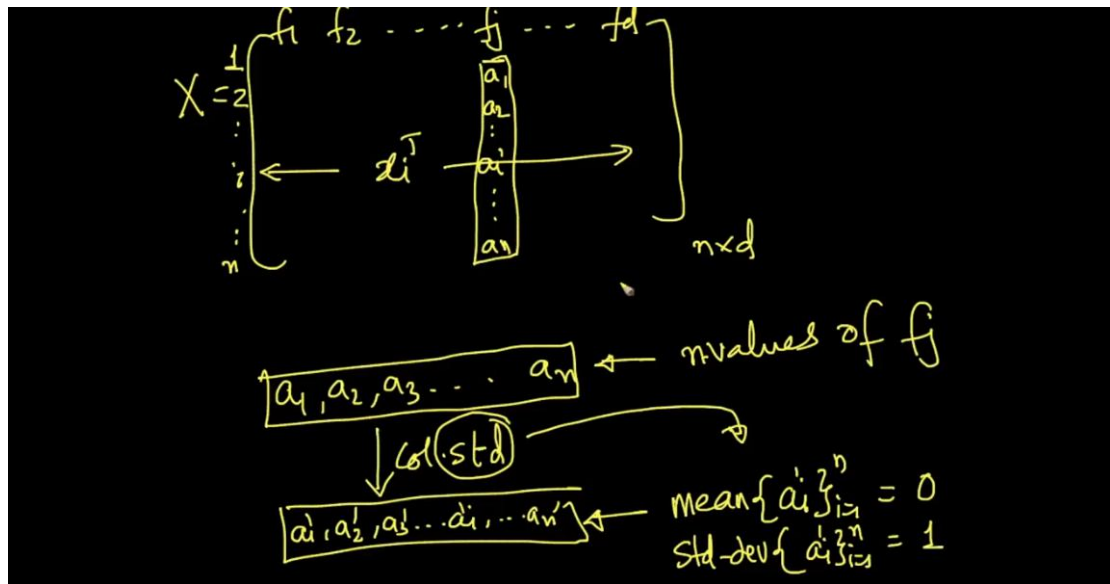 f1 f2 .... fj ... fd
1
X = 2
:
i ← xiᵀ →
:
n
a1
a2
:
ai
:
an
n×d
a1, a2, a3 ... an ← n-values of fj
col.std
a1', a2', a3' ... ai', ... an' ← mean{ai'}ⁿi=1 = 0
std-dev{ai'}ⁿi=1 = 1